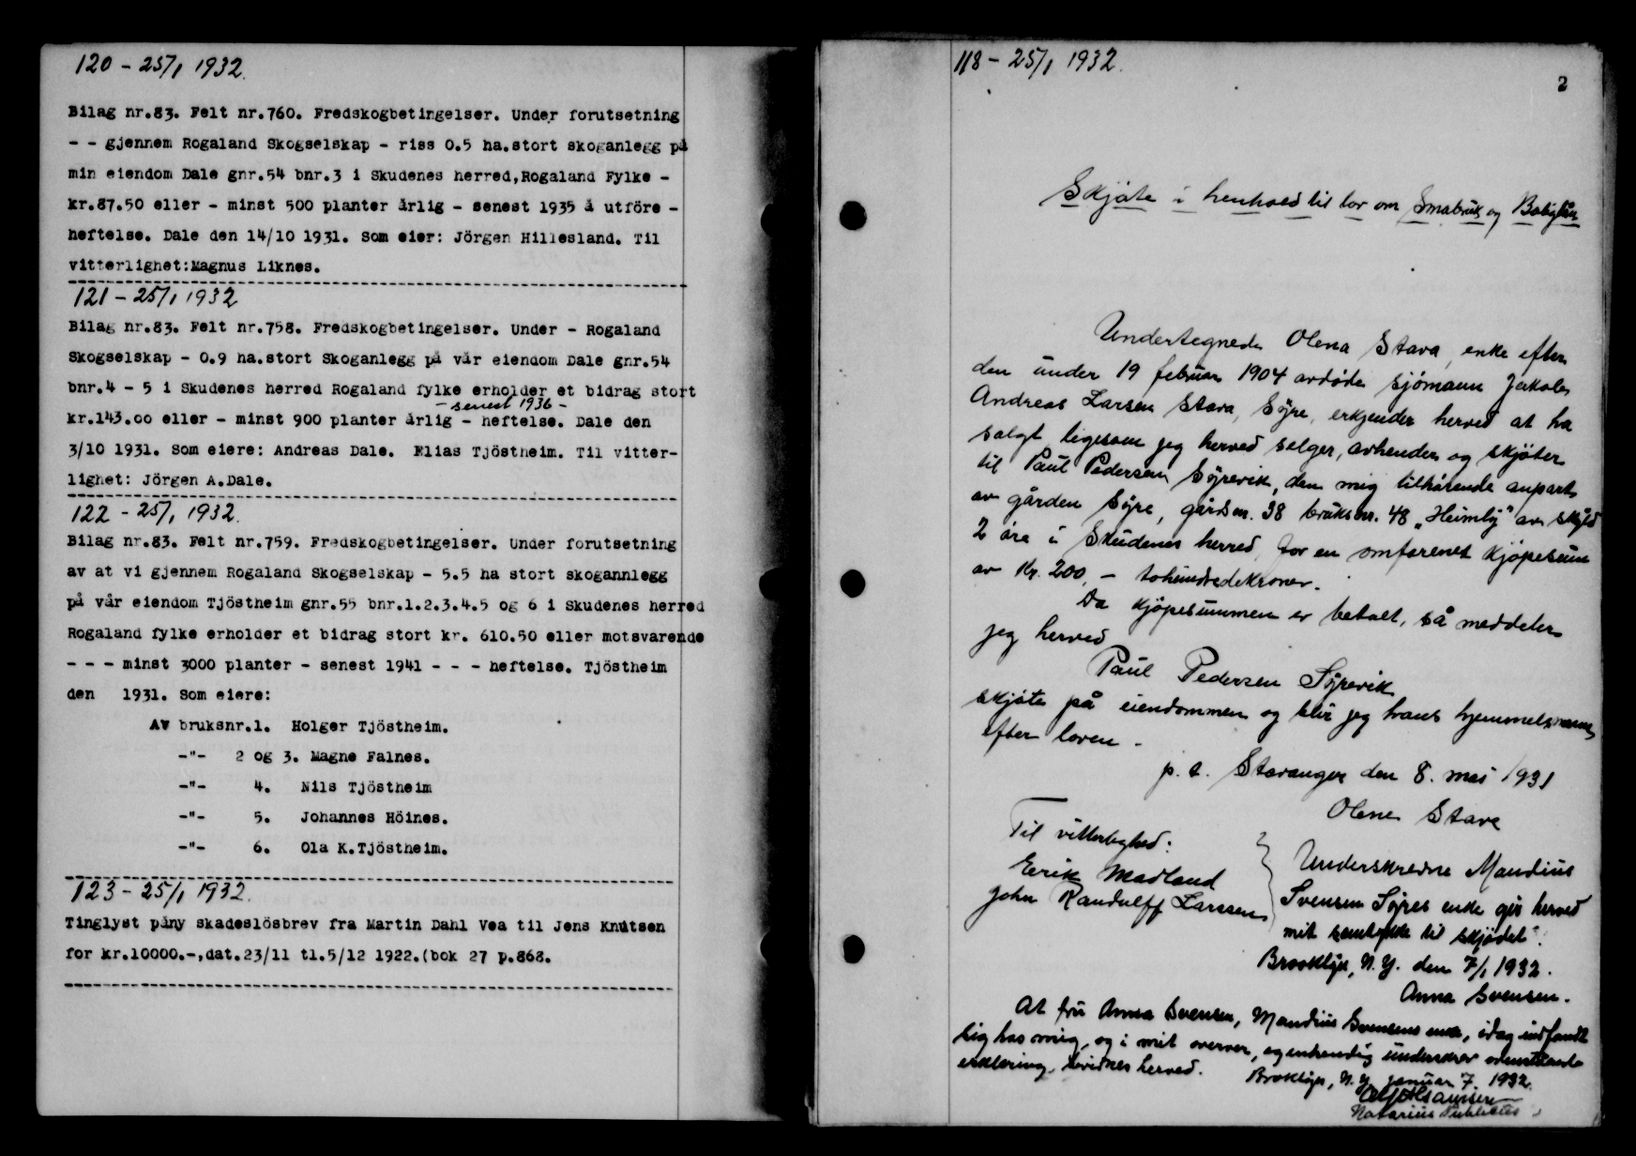 120 - 25/1 1932.
Bilag nr.83. Felt nr.760. Fredskogbetingelser. Under forutsetning
- - gjennem Rogaland Skogselskap - riss 0.5 ha.stort skoganlegg på
min eiendom Dale gnr.54 bnr.3 i Skudenes herred,Rogaland Fylke -
kr.87.50 eller - minst 500 planter årlig - senest 1935 å utföre -
heftelse. Dale den 14/10 1931. Som eier: Jörgen Hillesland. Til
vitterlighet:Magnus Liknes.
121 - 25/1 1932
Bilag nr.83. Felt nr.758. Fredskogbetingelser. Under - Rogaland
Skogselskap - 0.9 ha.stort Skoganlegg på vår eiendom Dale gnr.54
bnr.4 - 5 i Skudenes herred Rogaland fylke erholder et bidrag stort
- senest 1936 -
kr.143.oo eller - minst 900 planter årlig - heftelse. Dale den
3/10 1931. Som eiere: Andreas Dale. Elias Tjöstheim. Til vitter-
lighet: Jörgen A.Dale.
122 - 25/1 1932.
Bilag nr.83. Felt nr.759. Fredskogbetingelser. Under forutsetning
av at vi gjennem Rogaland Skogselskap - 5.5 ha stort skogannlegg
på vår eiendom Tjöstheim gnr.55 bnr.1.2.3.4.5 og 6 i Skudenes herred
Rogaland fylke erholder et bidrag stort kr. 610.50 eller motsvarende
- - - minst 3000 planter - senest 1941 - - - heftelse. Tjöstheim
den 1931. Som eiere:
Av bruksnr.1. Holger Tjöstheim.
-"- 2 og 3. Magne Falnes.
-"- 4. Nils Tjöstheim
-"- 5. Johannes Höines.
-"- 6. Ola K.Tjöstheim.
123 - 25/1 1932.
Tinglyst påny skadeslösbrev fra Martin Dahl Vea til Jens Knutsen
for kr.10000.-,dat.23/11 tl.5/12 1922.(bok 27 p.868.
118 - 25/1 1932.
2
Skjöte i henhold til lov om Småbruk og Boliglån
Undertegnede Olena Stava, enke efter
den under 19 februar 1904 avdöde sjömann Jakob
Andreas Larsen Stava, Söyre, erkjender herved at ha
solgt ligesom jeg herved selger, avhender og skjöter
til Paul Pedersen Söyrevik, den mig tilhörende anpart
av gården Söyre, gårdsnr. 38 bruksnr. 48 "Heimly" av skyld
2 öre i Skudenes herred, for en omforenet kjöpesum
av kr. 200,- tohundredekroner.
Da kjöpesummen er betalt, så meddeler
jeg herved
Paul Pedersen Söyrevik
skjöte på eiendommen og blir jeg hans hjemmelsmann
efter loven -
p.t. Stavanger den 8. mai 1931
Olene Stave
Til vitterlighed:
Erik Madland
John Randulff Larssen
Underskrevne Mandius
Svensen Söyres enke gir herved
mit samtykke til skjödet".
Brooklyn, N.Y. den 7/1 1932.
Anna Svensen.
At fru Anna Svensen, Mandius Svensens enke, idag indfandt
sig hos mig, og i mit overvær, egenhendig underskrev ovenstående
erklering, bevidnes herved.
Broklyn, N.Y. januar 7. 1932.
Notarius Publicus